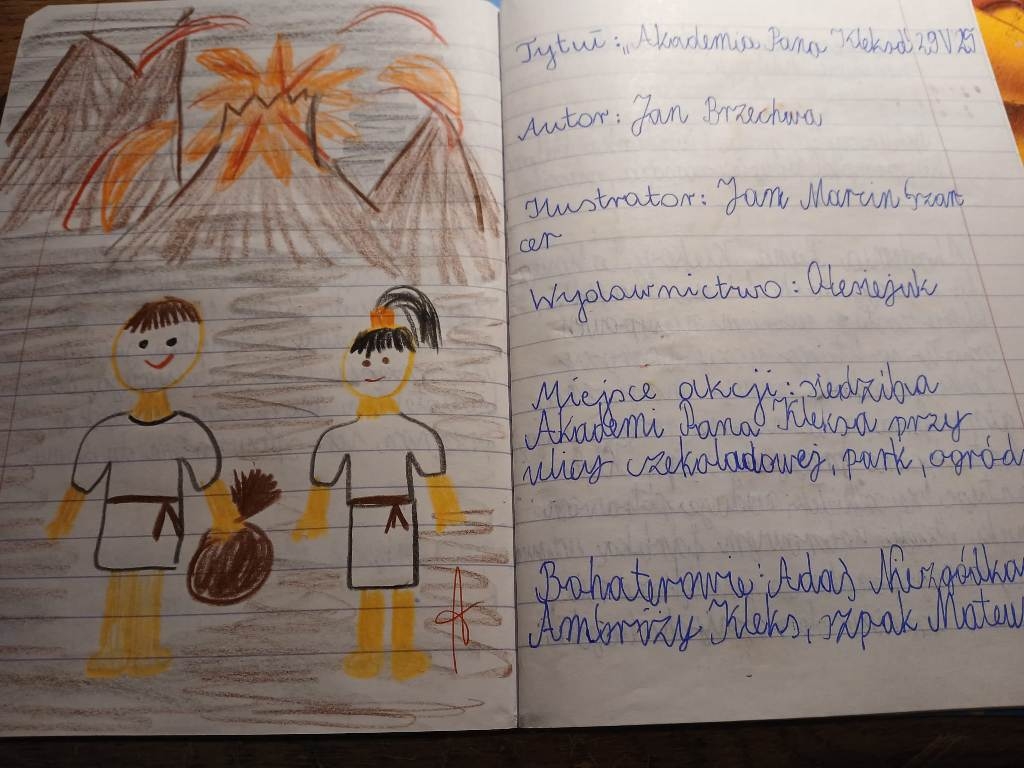 Tytuł: „Akademia Pana Kleksa" 29 V 25
Autor: Jan Brzechwa
Ilustrator: Jan Marcin Szan
cer
Wydawnictwo: Olesiejuk
Miejsce akcji: siedziba
Akademi Pana Kleksa przy
ulicy czekoladowej, park, ogród
Bohaterowie: Adaś Niezgódka
Ambroży Kleks, szpak Mateu